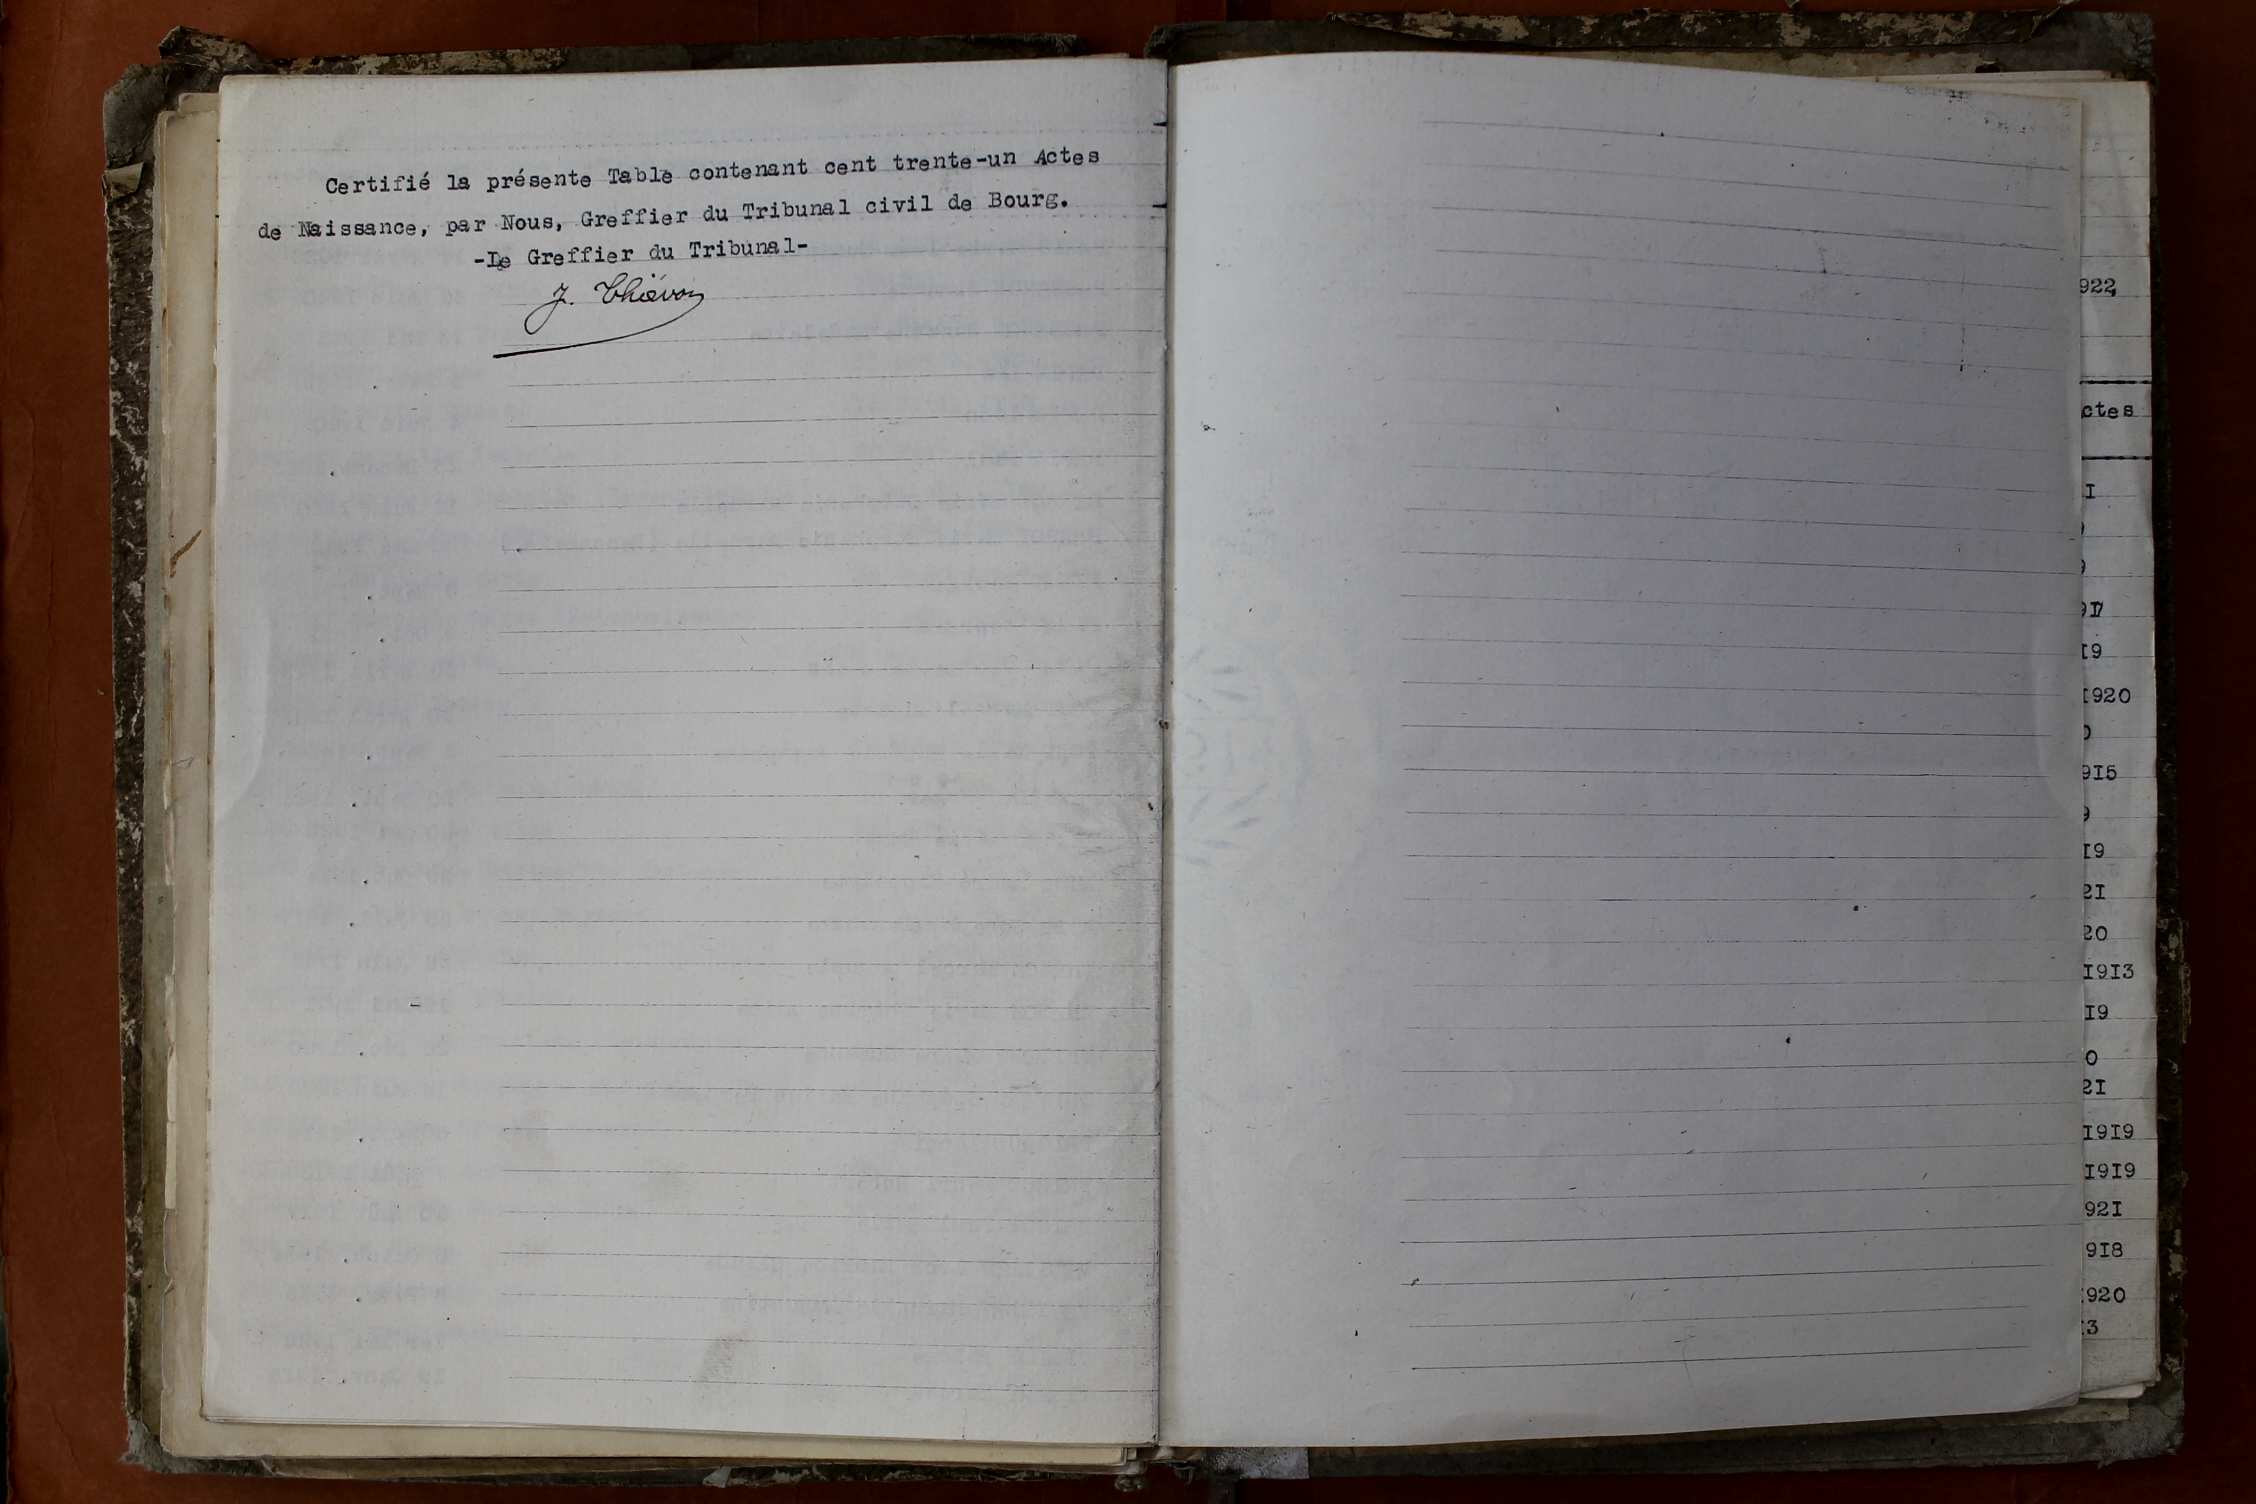 Certifié la présente Table contenant cent trente-un Actes
de Naissance, par Nous, Greffier du Tribunal civil de Bourg.
-Le Greffier du Tribunal-
J. Thiévon
922,
ctes
I
9I7
I9
I920
9I5
9
I9
2I
20
I9I3
I9
0
2I
I9I9
I9I9
92I
9I8
920
3